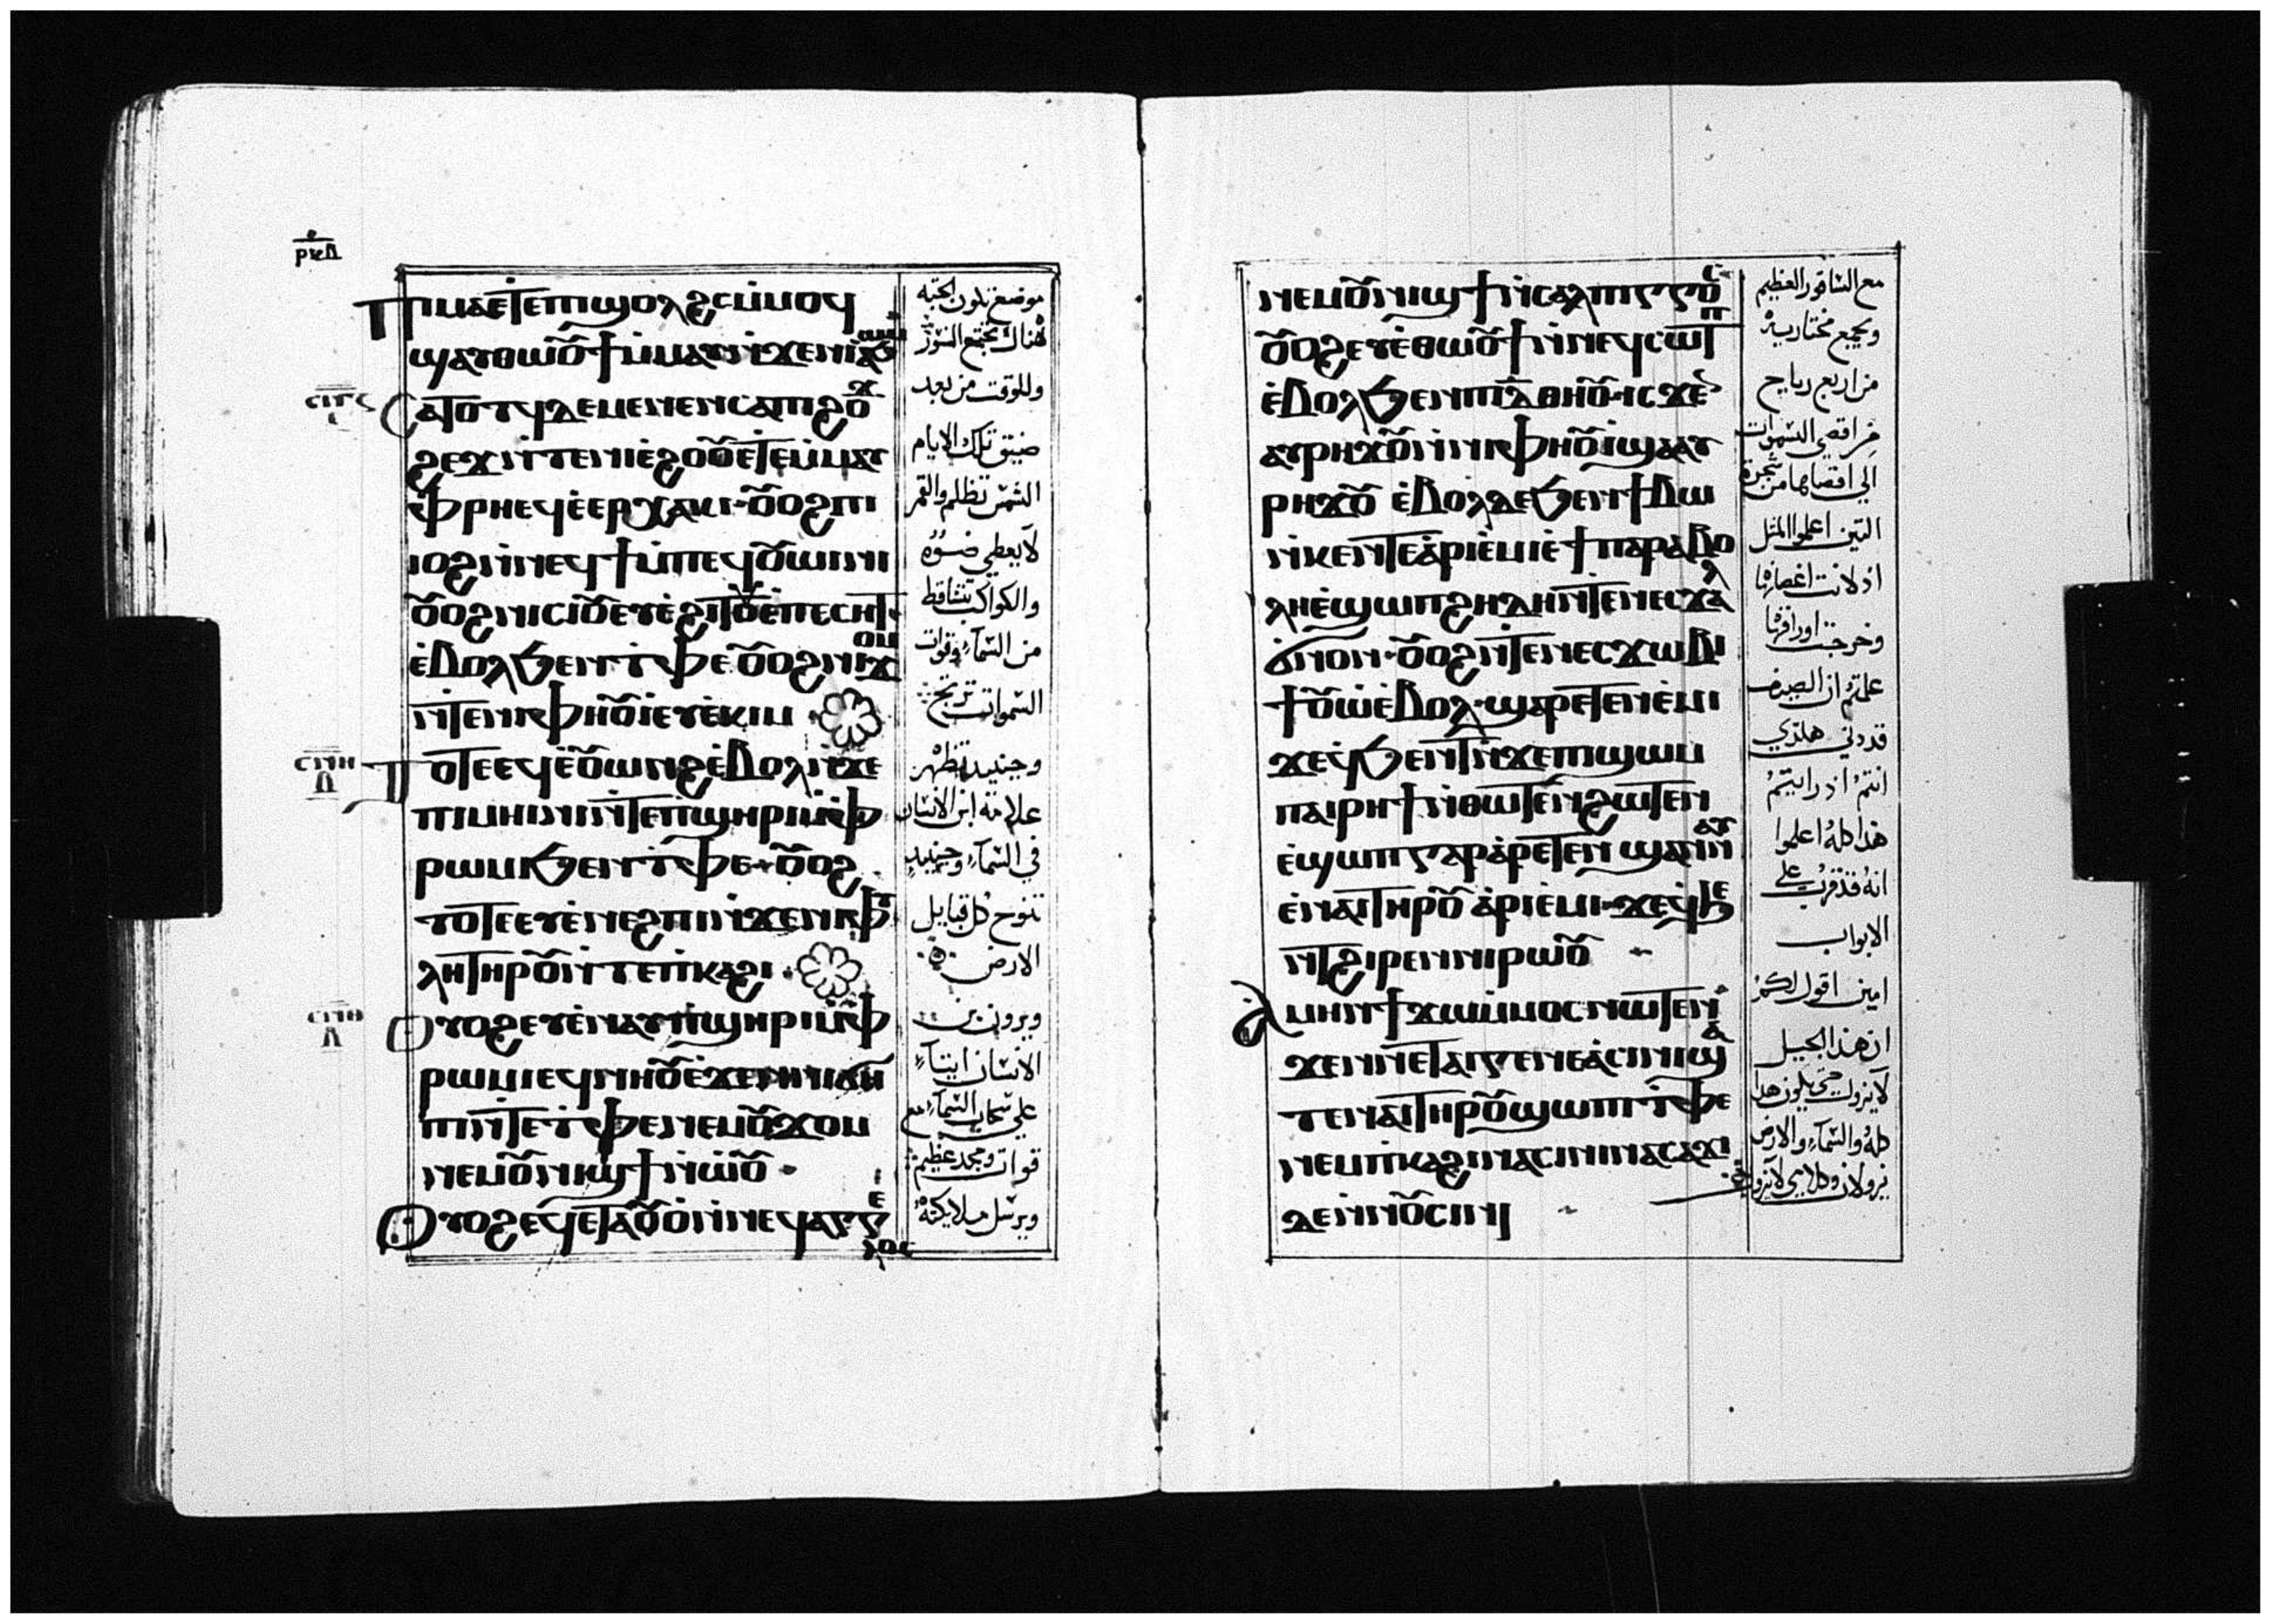 ⲣⲕⲇ
ⲡⲓⲙⲁ ⲉⲧⲉ ⲡϣⲟⲗϩⲥ ⲙ̇ⲙⲟϥ
ϣⲁⲩⲑⲱⲟⲩϯ ⲙ̇ⲙⲁⲩ ⲛ̇ϫⲉ ⲛⲓⲁϧⲱⲙ
ⲥⲁⲧⲟⲧϥ ⲇⲉ ⲙⲉⲛⲉⲛⲥⲁ ⲡϩⲟϫ
ϩⲉϫ ⲛ̇ⲧⲉ ⲛⲓⲉ̇ϩⲟⲟⲩ ⲉⲧⲉⲙ̇ⲙⲁⲩ
ⲫⲣⲏ ⲉϥⲉ̇ⲉⲣⲭⲁⲕⲓ ⲟⲩⲟϩ ⲡⲓ
ⲓⲟϩ ⲛ̇ⲛⲉϥϯ ⲙ̇ⲡⲉϥⲟⲩⲱⲓⲛⲓ
ⲟⲩⲟϩ ⲛⲓⲥⲓⲟⲩ ⲉⲩⲉ̇ϩⲓⲧⲟⲩ ⲉ̇ⲡⲉⲥⲏⲧ
ⲉ̇ⲃⲟⲗ ϧⲉⲛ ⲧ̇ⲫⲉ ⲟⲩⲟϩ ⲛⲓϫⲟⲙ
ⲛ̇ⲧⲉ ⲛⲓⲫⲏⲟⲩⲓ̇ ⲉⲩⲉ̇ⲕⲓⲙ
ⲧⲟⲧⲉ ⲉϥⲉ̇ⲟⲩⲱⲛϩ ⲉ̇ⲃⲟⲗ ⲛ̇ϫⲉ
ⲡⲓⲙⲏⲓⲛⲓ ⲛ̇ⲧⲉ ⲡ̇ϣⲏⲣⲓ ⲙ̇ⲫ
ⲣⲱⲙⲓ ϧⲉⲛ ⲧ̇ⲫⲉ ⲟⲩⲟϩ
ⲧⲟⲧⲉ ⲉⲩⲉ̇ⲛⲉϩⲡⲓ ⲛ̇ϫⲉ ⲛⲓⲫⲩ
ⲗⲏ ⲧⲏⲣⲟⲩ ⲛ̇ⲧⲉ ⲡ̇ⲕⲁϩⲓ
ⲟⲩⲟϩ ⲉⲩⲉ̇ⲛⲁⲩ ⲡ̇ϣⲏⲣⲓ ⲙ̇ⲫ
ⲣⲱⲙⲓ ⲉϥⲛⲏⲟⲩ ⲉ̇ϫⲉⲛ ⲛⲓϭⲏ
ⲡⲓ ⲛ̇ⲧⲉ ⲧ̇ⲫⲉ ⲛⲉⲙ ⲟⲩϫⲟⲙ
ⲛⲉⲙ ⲟⲩⲛⲓϣϯ ⲛ̇ⲱⲟⲩ
ⲟⲩⲟϩ ⲉϥⲉⲧⲁⲟⲩⲟ̇ ⲛ̇ⲛⲉϥⲁⲅⲅⲉ
ⲗⲟⲥ
موضع تكون الجثة
هناك تجتمع النسور
وللوقت من بعد
ضيق تلك الايام
الشمس تظلم والقمر
لا يعطي ضوه
والكواكب تتساقط
من السماء وقوات
السموات ترتج
وحينيد تظهر
علامة ابن الانسان
في السماء وحينيد
تنوح كل قبايل
الارض
ويرون ابن
الانسان اتيا
علي سحاب السماء مع
قوات ومجد عظيم
ويرسل ملايكته
ⲛⲉⲙ ⲟⲩⲛⲓϣϯ ⲛ̇ⲥⲁⲗⲡⲓⲅⲅⲟⲥ
ⲟⲩⲟϩ ⲉⲩⲉ̇ⲑⲱⲟⲩϯ ⲛ̇ⲛⲉϥⲥⲱⲧⲡ
ⲉ̇ⲃⲟⲗ ϧⲉⲛ ⲡⲓⲇ ⲑⲏⲟⲩ ⲓⲥϫⲉⲛ
ⲁⲩⲣⲏϫⲟⲩ ⲛ̇ⲛⲓⲫⲏⲟⲩⲓ̇ ϣⲁ ⲁⲩ
ⲣⲏϫⲟⲩ ⲉ̇ⲃⲟⲗ ⲇⲉ ϧⲉⲛ ϯⲃⲱ
ⲛ̇ⲕⲉⲛⲧⲉ ⲁ̇ⲣⲓⲉ̇ⲙⲓ ⲉ̇ϯⲡⲁⲣⲁⲃⲟ
ⲗⲏ ⲉ̇ϣⲱⲡ ϩⲏⲇⲏ ⲛ̇ⲧⲉ ⲛⲉⲥϫⲁⲗ
ϭⲛⲟⲛ ⲟⲩⲟϩ ⲛ̇ⲧⲉ ⲛⲉⲥϫⲱⲃⲓ
ϯⲟⲩⲱ̇ ⲉ̇ⲃⲟⲗ ϣⲁⲣⲉⲧⲉⲛⲉ̇ⲙⲓ
ϫⲉ ϥ̇ϧⲉⲛⲧ ⲛ̇ϫⲉ ⲡϣⲱⲙ
ⲡⲁⲓⲣⲏϯ ⲛ̇ⲑⲱⲧⲉⲛ ϩⲱⲧⲉⲛ
ⲉ̇ϣⲱⲡ ⲅⲁⲣ ⲁ̇ⲣⲉⲧⲉⲛϣⲁⲛⲛⲁⲩ
ⲉ̇ⲛⲁⲓ ⲧⲏⲣⲟⲩ ⲁ̇ⲣⲓⲉ̇ⲙⲓ ϫⲉ ϥ̇ϧⲉ
ⲛⲧ ϩⲓⲣⲉⲛ ⲛⲓⲣⲱⲟⲩ
ⲁⲙⲏⲛ ϯϫⲱ ⲙ̇ⲙⲟⲥ ⲛⲱⲧⲉⲛ
ϫⲉ ⲛ̇ⲛⲉ ⲧⲁⲓⲅⲉⲛⲉⲁ̀ ⲥⲓⲛⲓ ϣⲁ
ⲧⲉ ⲛⲁⲓ ⲧⲏⲣⲟⲩ ϣⲱⲡⲓ ⲧ̇ⲫⲉ
ⲛⲉⲙ ⲡ̇ⲕⲁϩⲓ ⲛⲁⲥⲓⲛⲓ ⲛⲁⲥⲁϫⲓ
ⲇⲉ ⲛ̇ⲛⲟⲩⲥⲓⲛⲓ
مع الساقور العظيم
ويجمع مختاريه
من اربع رياح
من اقصي السموات
الي اقصاها من شجرة
التين اعلموا المثل
اذ لانت اغصانها
وخرجت اوراقها
علمتم ان الصيف
قد دني هكذي
انتم اذ رايتم
هذا كله اعلموا
انه قد قرب علي
الابواب
امين اقول لكم
ان هذا الجيل
لا يزول حتي يكون هذا
كله والسماء والارض
يزولان وكلامي لا يزول